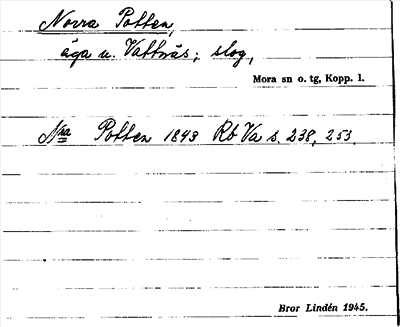 Norra Potten,
äga u. Vattnäs; slog,
Mora sn o. tg, Kopp. l.
Nra Potten 1843 Rb Va s. 238, 253.
Bror Lindén 1945.